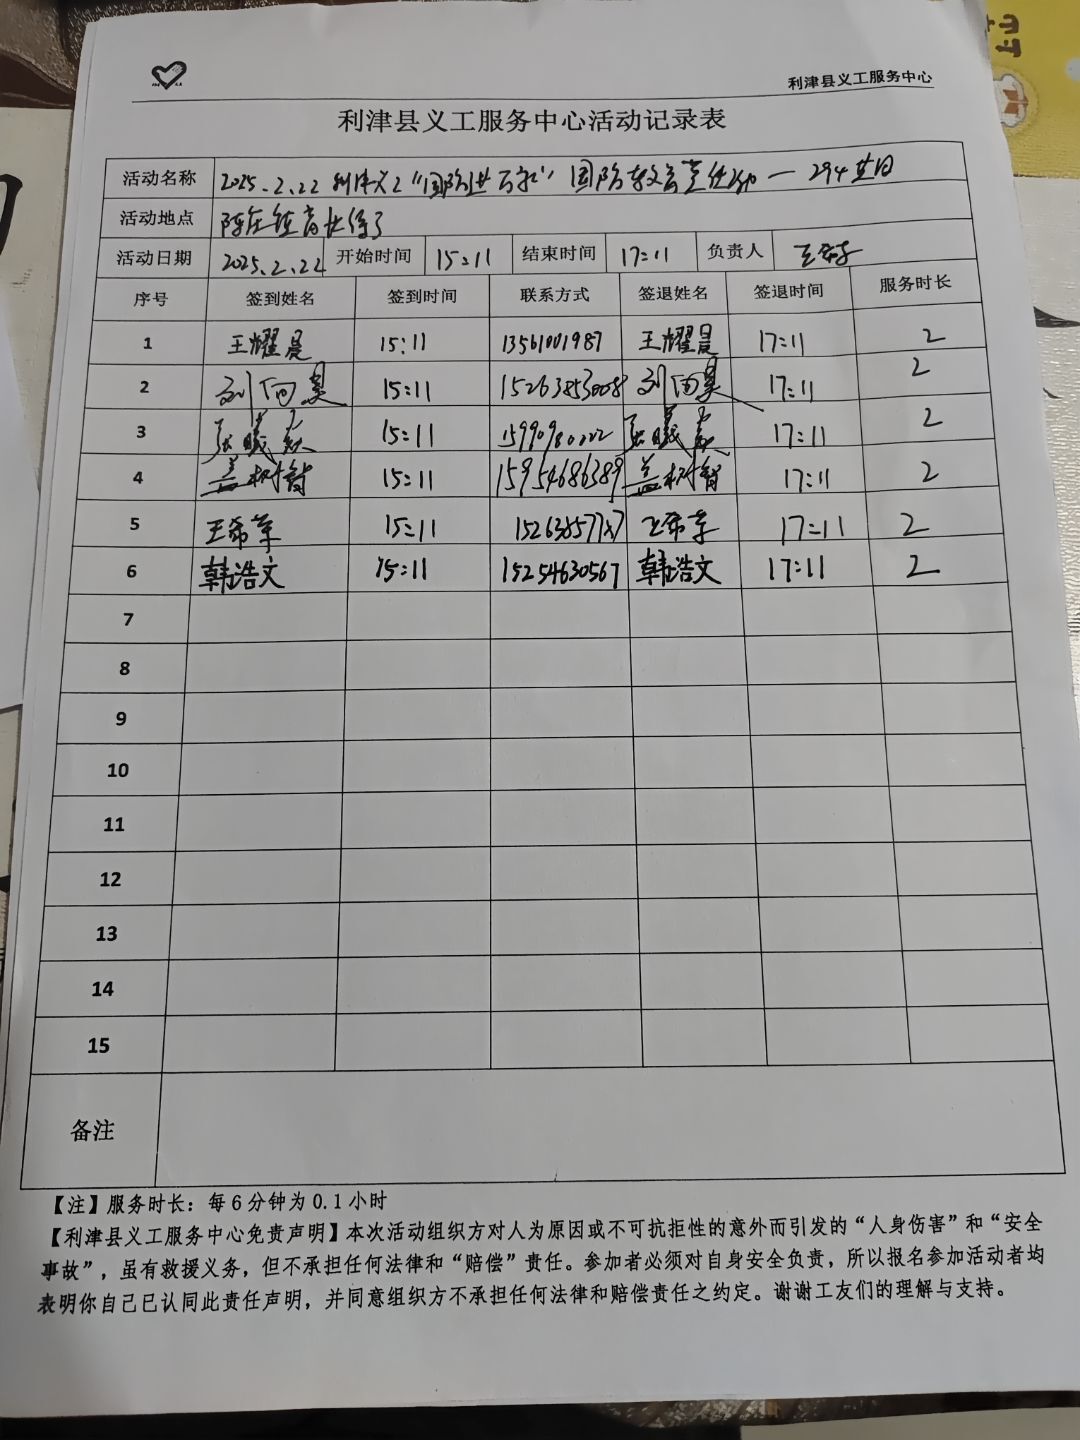 利津县义工服务中心
利津县义工服务中心活动记录表
活动名称 2025.2.22 利津义工"国防进万家"国防教育 — 294
活动地点 陈庄镇
活动日期 2025.2.22 开始时间 15:11 结束时间 17:11 负责人
序号 签到姓名 签到时间 联系方式 签退姓名 签退时间 服务时长
1 王耀晨 15:11 13561001987 王耀晨 17:11 2
2 刘向昊 15:11 15263853008 刘向昊 17:11 2
3 张曦 15:11 15990980222 张曦 17:11 2
4 盖树智 15:11 15954686389 盖树智 17:11 2
5 王希 15:11 王希 17:11 2
6 韩浩文 15:11 15254630567 韩浩文 17:11 2
7
8
9
10
11
12
13
14
15
备注
【注】服务时长：每6分钟为0.1小时
【利津县义工服务中心免责声明】本次活动组织方对人为原因或不可抗拒性的意外而引发的“人身伤害”和“安全
事故”，虽有救援义务，但不承担任何法律和“赔偿”责任。参加者必须对自身安全负责，所以报名参加活动者均
表明你自己已认同此责任声明，并同意组织方不承担任何法律和赔偿责任之约定。谢谢工友们的理解与支持。